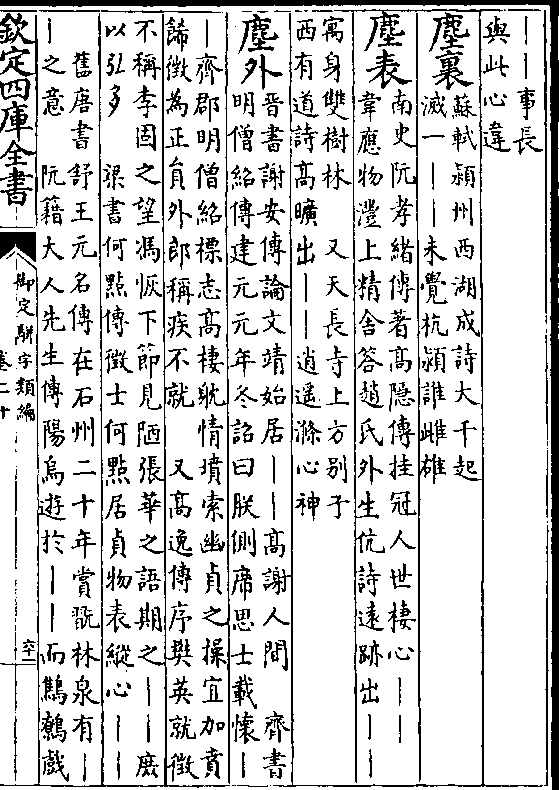 ｜｜事長
與此心違
塵裏
蘇軾潁州西湖成詩大千起
滅一｜｜未覺杭潁誰雌雄
塵表
南史阮孝緒傳著髙隠傳挂冠人世棲心｜｜
韋應物灃上精舍答趙氏外生伉詩遠跡出｜｜
寓身雙樹林　又天長寺上方别子
西有道詩髙曠出｜｜逍遥滌心神
塵外
晉書謝安傳論文靖始居｜｜髙謝人間　齊書
明僧紹傳建元元年冬詔曰朕側席思士載懐｜
｜齊郡明僧紹標志髙棲躭情墳索幽貞之操宜加賁
餙徵為正員外郎稱疾不就　又髙逸傳序樊英就徵
不稱李固之望馮恢下節見陋張華之語期之｜｜庶
以弘多　梁書何點傳徵士何點居貞物表縱心｜｜
舊唐書舒王元名傳在石州二十年賞翫林泉有｜
｜之意　阮籍大人先生傳陽烏遊於｜｜而鷦鷯戯
欽定四庫全書
御定駢字類編
卷二十
六二